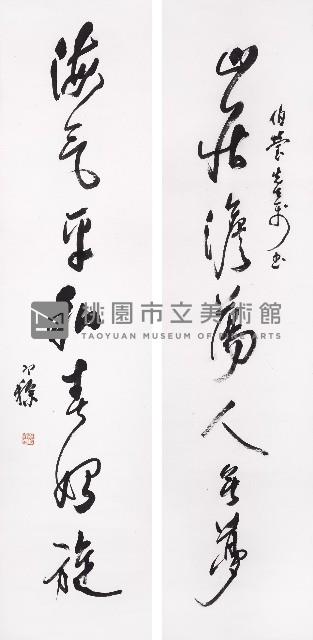 伯先生
山居澹蕩人無夢
海氣平春始旋
桃園市立美術館
TAOYUAN MUSEUM OF FINE ARTS